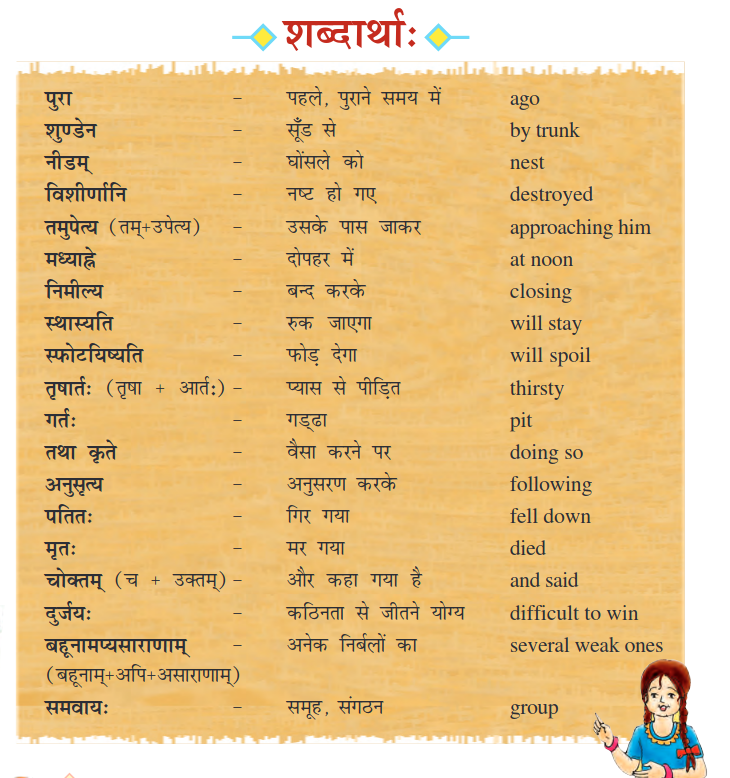 शब्दार्थाः
पुरा – पहले, पुराने समय में ago
शुण्डेन – सूँड से by trunk
नीडम् – घोंसले को nest
विशीर्णानि – नष्ट हो गए destroyed
तमुपेत्य (तम्+उपेत्य) – उसके पास जाकर approaching him
मध्याह्ने – दोपहर में at noon
निमील्य – बन्द करके closing
स्थास्यति – रुक जाएगा will stay
स्फोटयिष्यति – फोड़ देगा will spoil
तृषार्तः (तृषा + आर्त:) – प्यास से पीड़ित thirsty
गर्तः – गड्ढा pit
तथा कृते – वैसा करने पर doing so
अनुसृत्य – अनुसरण करके following
पतितः – गिर गया fell down
मृतः – मर गया died
चोक्तम् (च + उक्तम्) – और कहा गया है and said
दुर्जयः – कठिनता से जीतने योग्य difficult to win
बहूनामप्यसाराणाम् – अनेक निर्बलों का several weak ones
(बहूनाम्+अपि+असाराणाम्)
समवायः – समूह, संगठन group